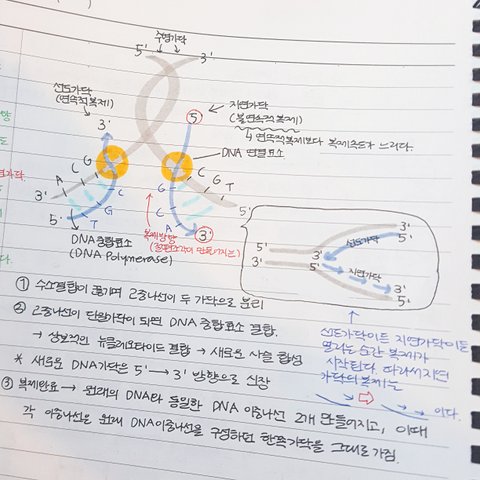 주형가닥
5' 3'
선도가닥
(연속적 복제)
지연가닥
(불연속적 복제)
↳ 연속적복제보다 복제속도가 느리다.
3'
5
DNA 연결효소
A C G
C G T
3'
T
C
G
C
G
A
5'
5'
3'
DNA 중합효소
(DNA Polymerase)
복제방향
3'
5'
선도가닥
5'
3'
3'
5'
지연가닥
3'
5'
① 수소결합이 끊기며 2중나선이 두 가닥으로 분리
② 2중나선이 단일가닥이 되면 DNA 중합효소 결합.
→ 상보적인 뉴클레오타이드 결합 → 새로운 사슬 합성
* 새로운 DNA가닥은 5' → 3' 방향으로 신장
③ 복제완료 → 원래의 DNA와 동일한 DNA 이중나선 2개 만들어지고, 이때
각 이중나선은 원래 DNA이중나선을 구성하던 한쪽가닥을 그대로 가짐.
선도가닥이든 지연가닥이든
열리는 순간 복제가
시작된다. 따라서 지연
가닥의 복제는
⇨ 이다.